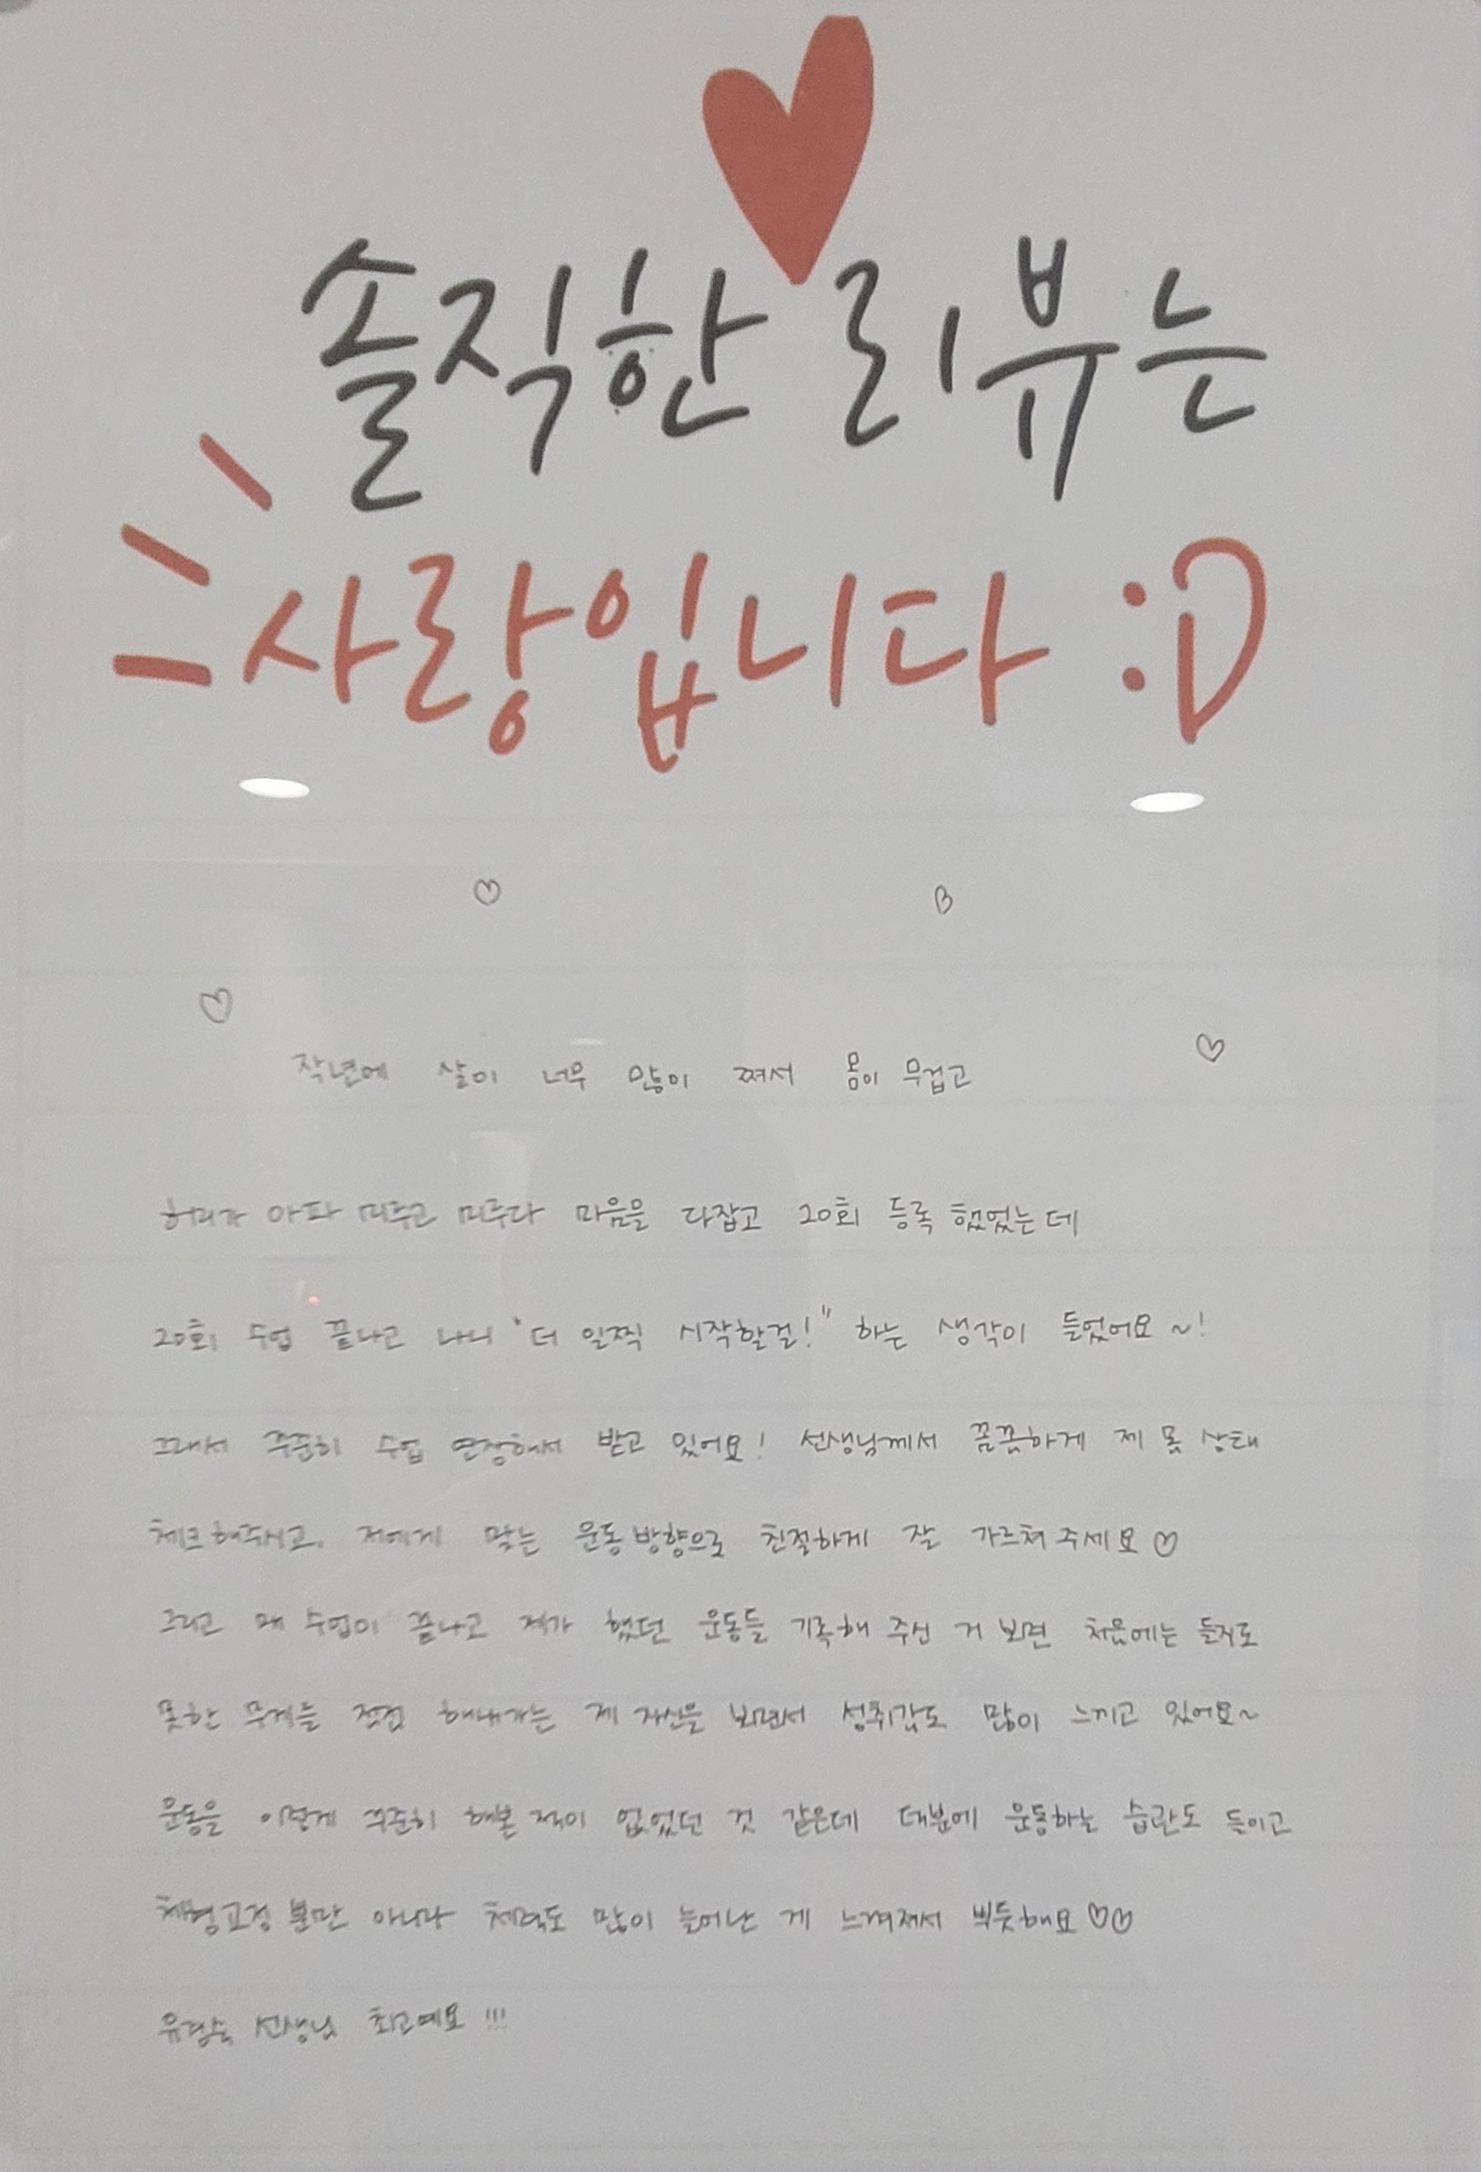 솔직한 리뷰는
사랑입니다 :D
작년에 살이 너무 많이 쪄서 몸이 무겁고
허리가 아파 미루고 미루다 마음을 다잡고 20회 등록했었는데
20회 수업 끝나고 나니 "더 일찍 시작할걸!" 하는 생각이 들었어요~!
그래서 꾸준히 수업 연장해서 받고 있어요! 선생님께서 꼼꼼하게 제 몸 상태
체크해주시고, 저에게 맞는 운동 방향으로 친절하게 잘 가르쳐 주세요♡
그리고 매 수업이 끝나고 제가 했던 운동들 기록해 주신 거 보면 처음에는 들지도
못한 무게를 점점 해내가는 제 자신을 보면서 성취감도 많이 느끼고 있어요~
운동을 이렇게 꾸준히 해본 적이 없었던 것 같은데 덕분에 운동하는 습관도 들이고
체형교정 뿐만 아니라 체력도 많이 늘어난 게 느껴져서 뿌듯해요♡♡
선생님 최고예요!!!